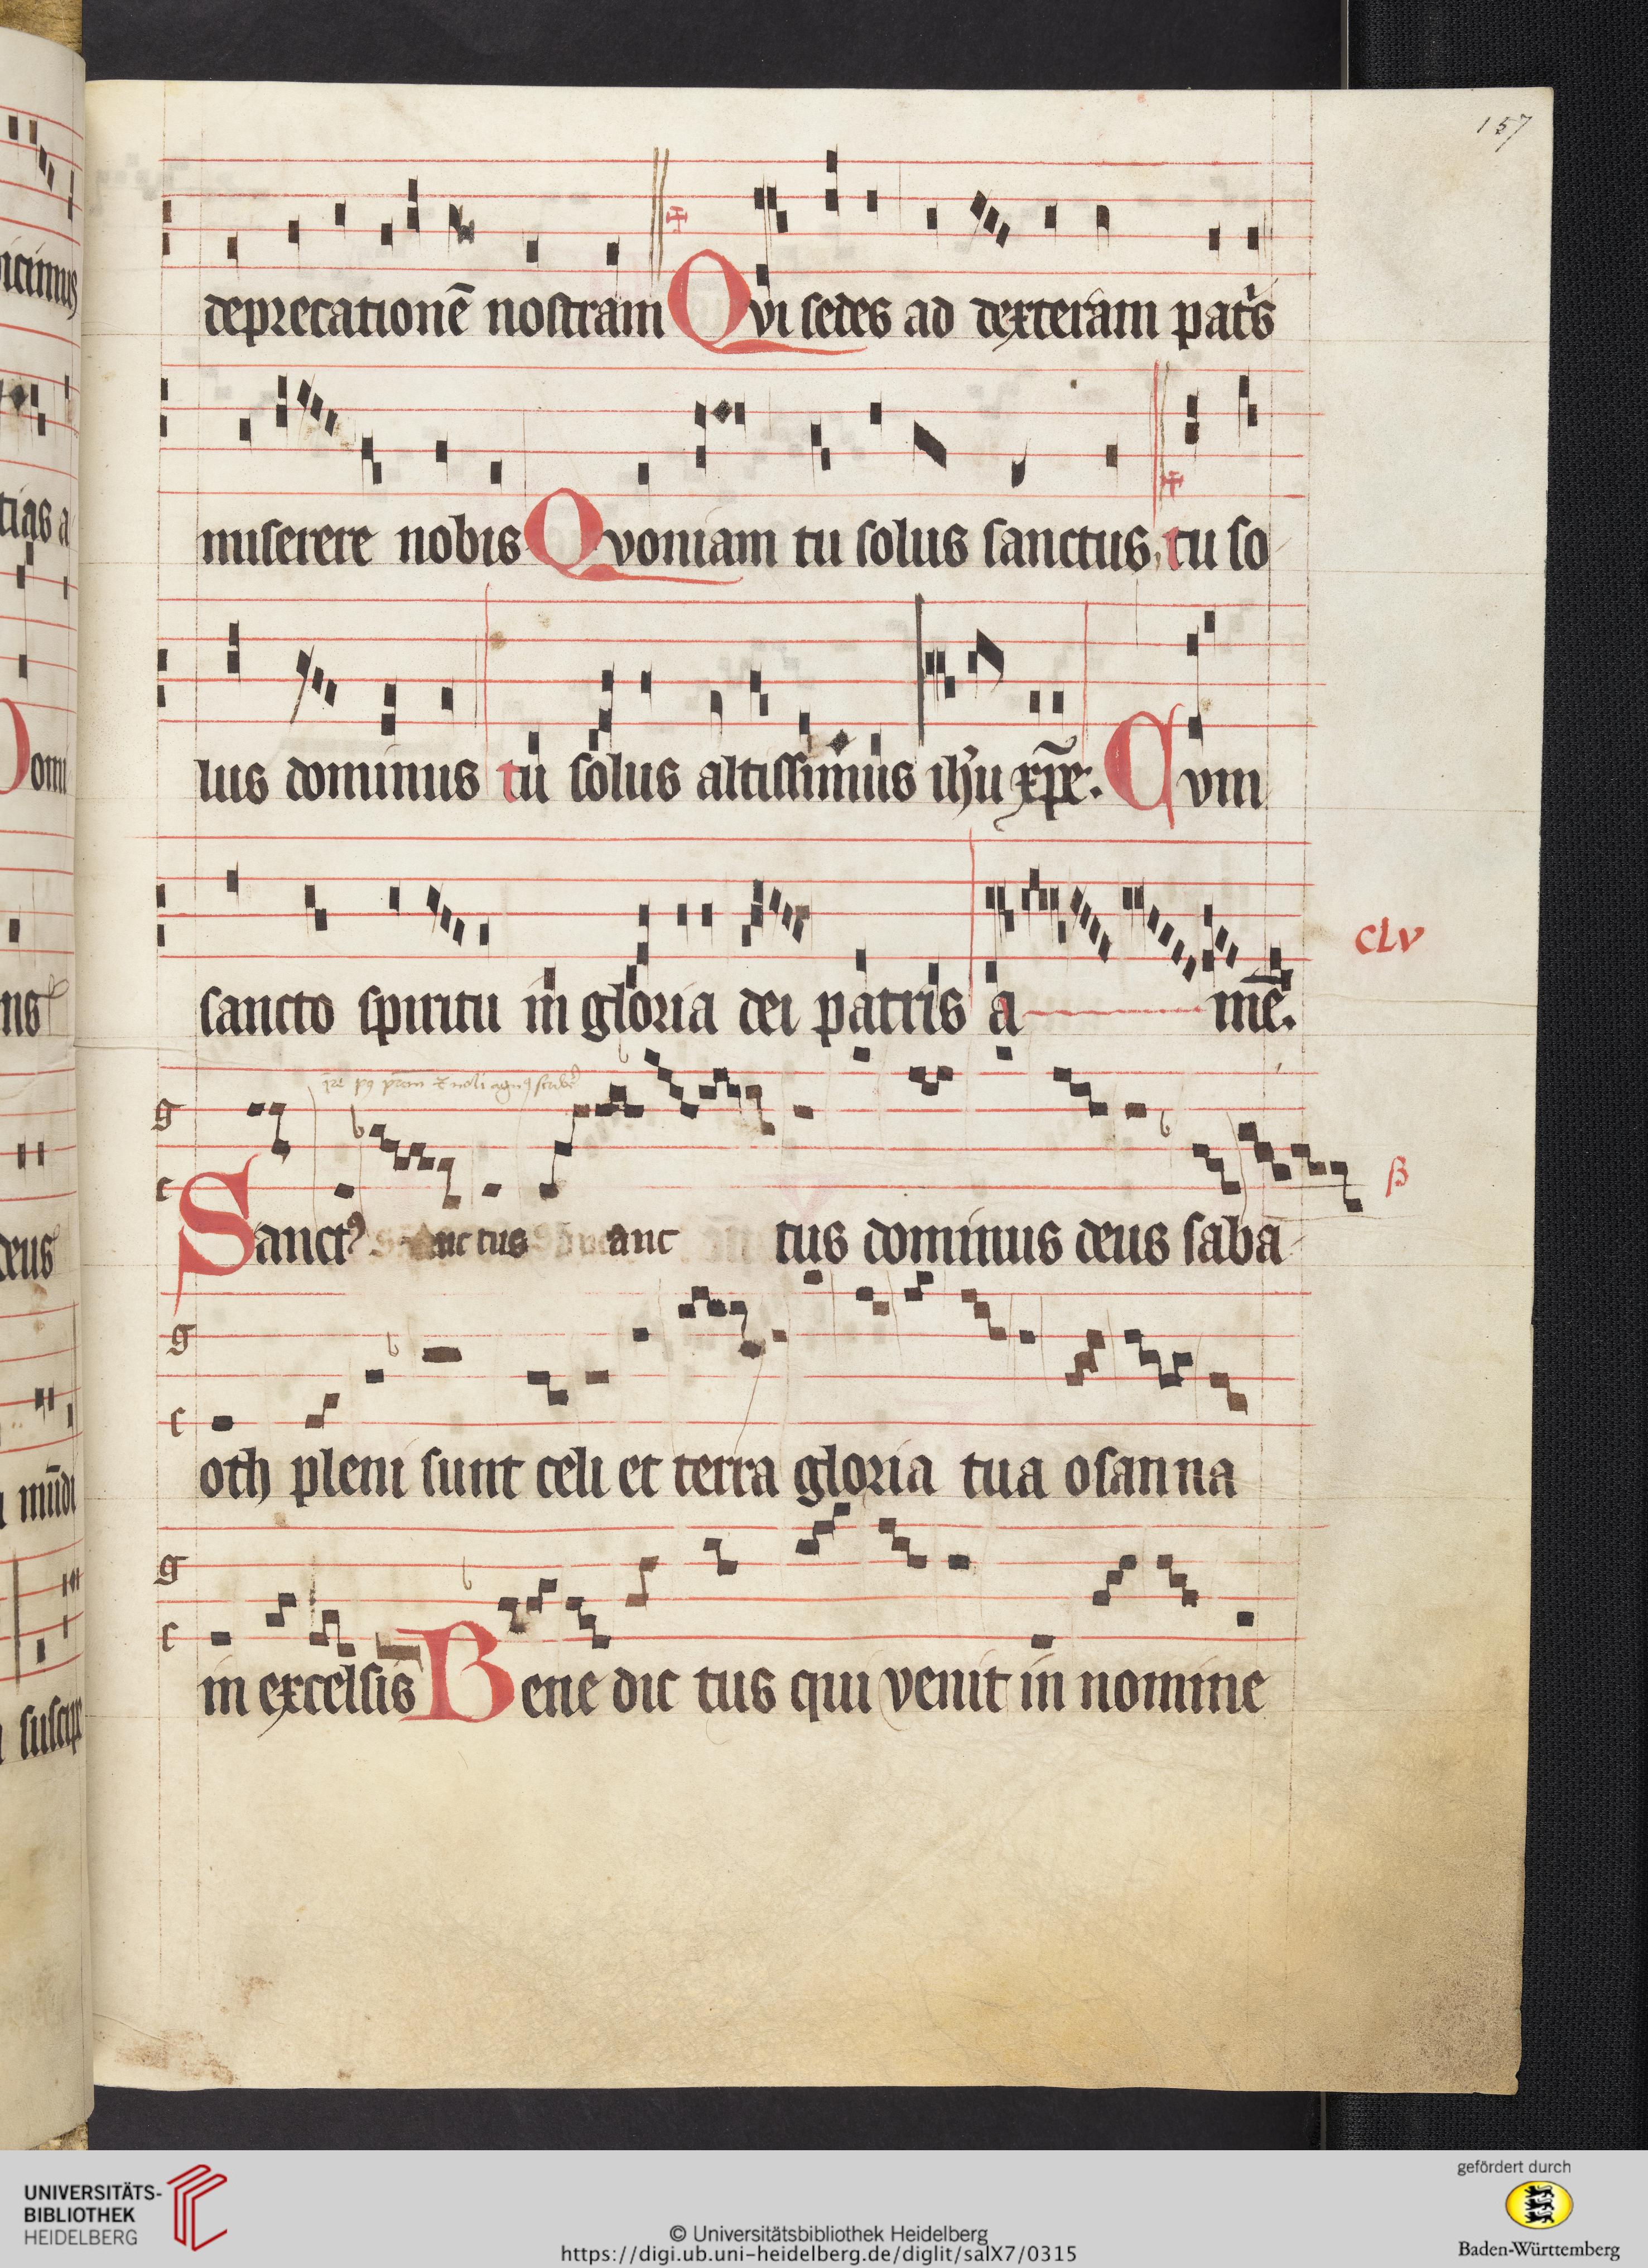 157
deprecationē nostram Qvi sedes ad dexteram pat̾s
miserere nobis Qvoniam tu solus sanctus, tu so
lus dominus tu solus altissimus ih̅u xp̅e. Cvm
sancto spiritu in gloria dei patris a mē.
CLV
g
c
Sanctꝰ nc tus anc tus dominus deus saba
ß
g
c
oth pleni sunt celi et terra gloria tua osanna
g
c
in excelsis Bene dic tus qui venit in nomine
icimus
tias a
Domi
ns
deus
mūdi
suscipe
UNIVERSITÄTS-
BIBLIOTHEK
HEIDELBERG
© Universitätsbibliothek Heidelberg
https://digi.ub.uni-heidelberg.de/diglit/salX7/0315
gefördert durch
Baden-Württemberg